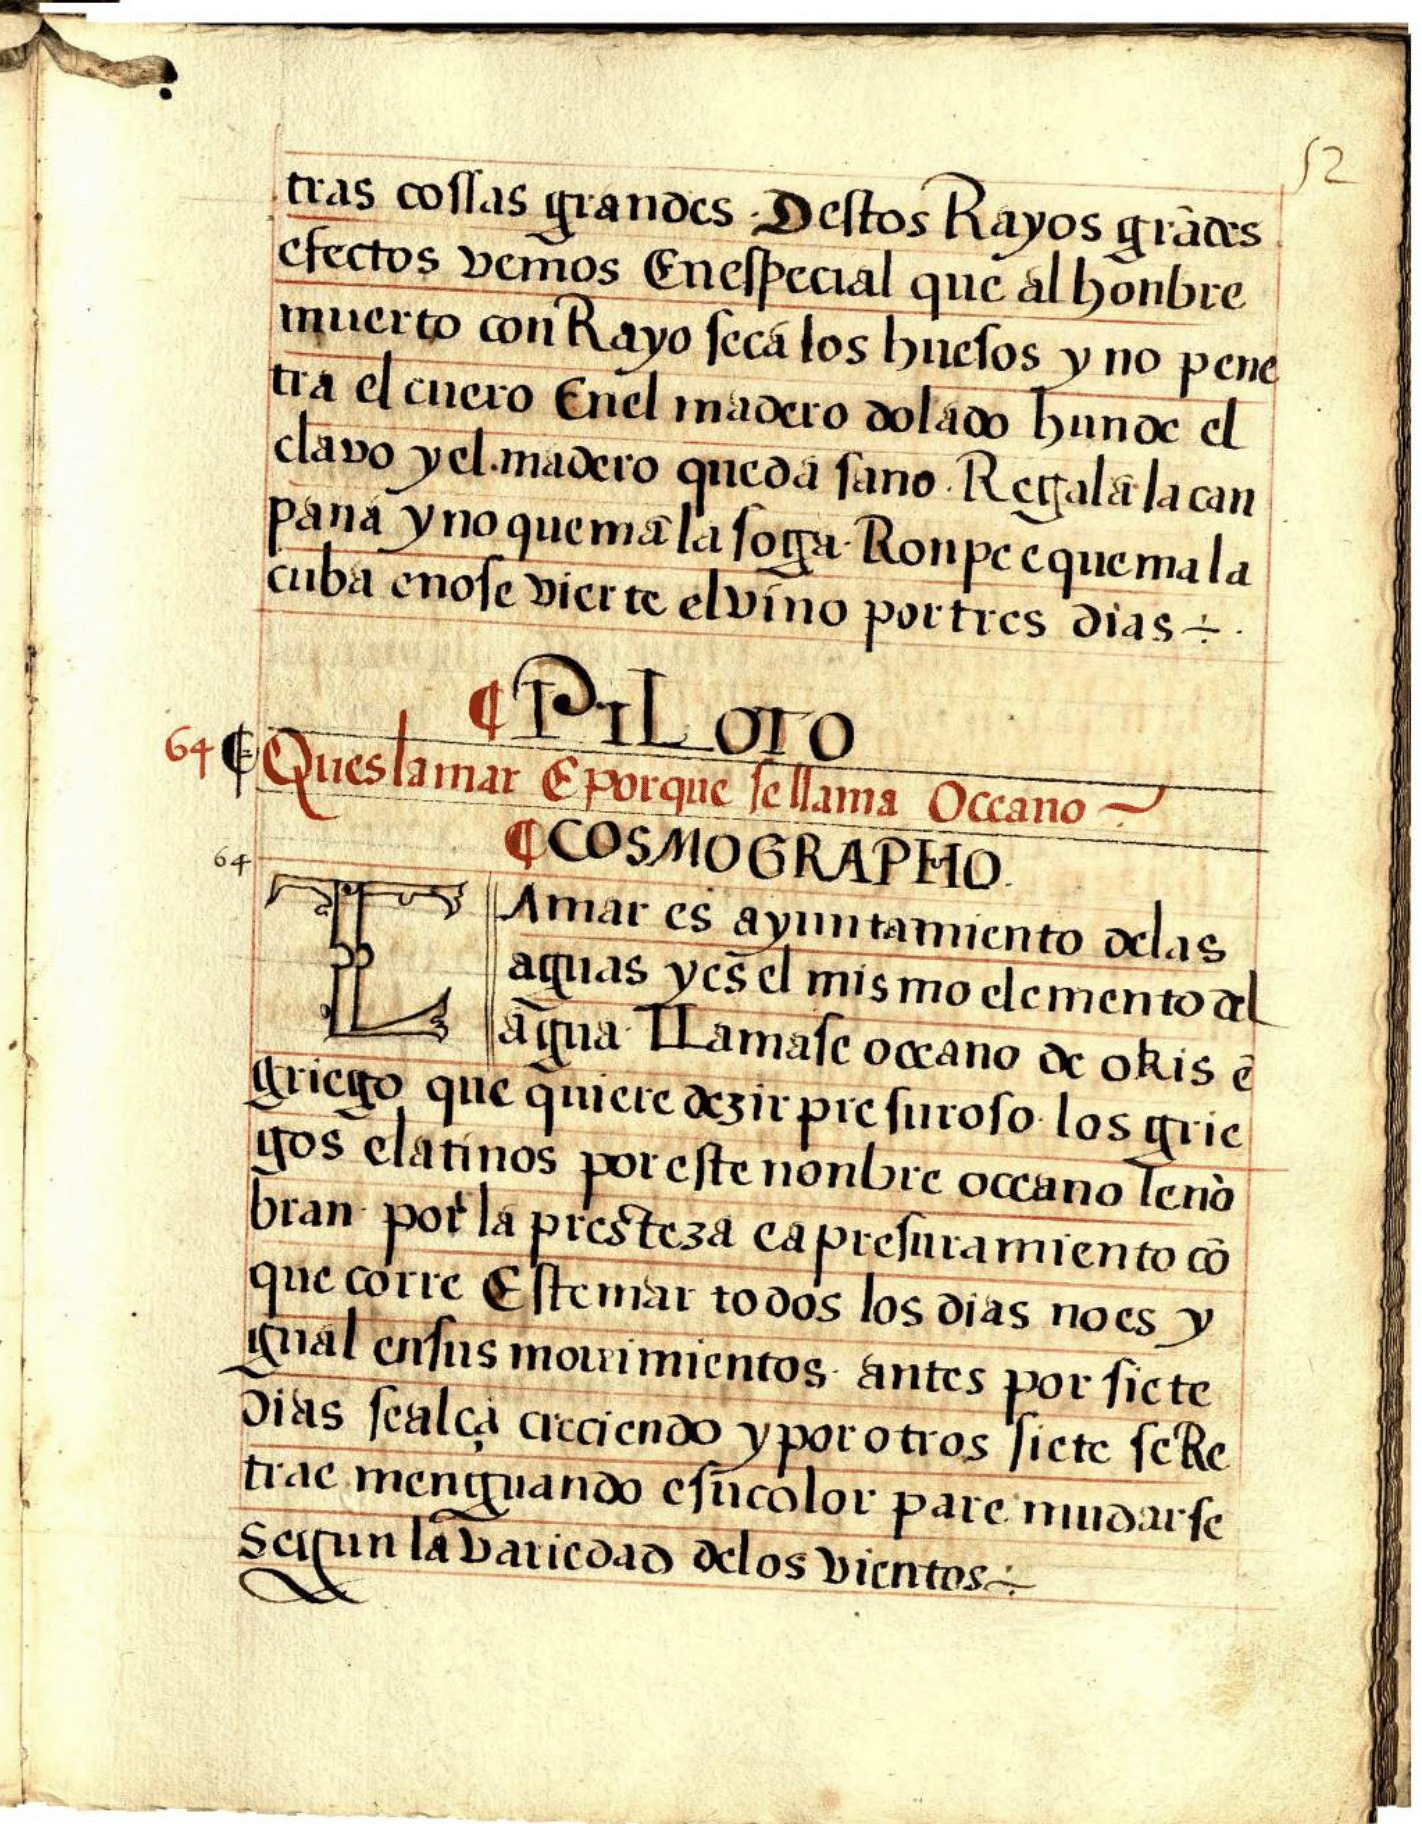 52
tras cossas grandes. Destos Rayos grãdes
efectos vemos En especial que al honbre
muerto con Rayo seca los huesos y no pene
tra el cuero En el madero dolado hunde el
clavo y el madero queda sano. Regala la can
pana y no quema la soga. Ronpe e quema la
cuba e no se vierte el vino por tres dias ÷.
¶ PILOTO
64 ¶ Ques la mar E porque se llama Occeano
¶ COSMOGRAPHO.
64
LAmar es ayuntamiento de las
aguas y es el mismo elemento del
agua. LLamase occeano de okis ẽ
griego que quiere dezir presuroso. los grie
gos e latinos por este nonbre occeano le nõ
bran por la presteza e apresuramiento cõ
que corre Este mar todos los dias no es y
gual en sus movimientos. antes por siete
dias se alça creciendo y por otros siete se Re
trae menguando e su color pare mudarse
segun la variedad de los vientos ÷